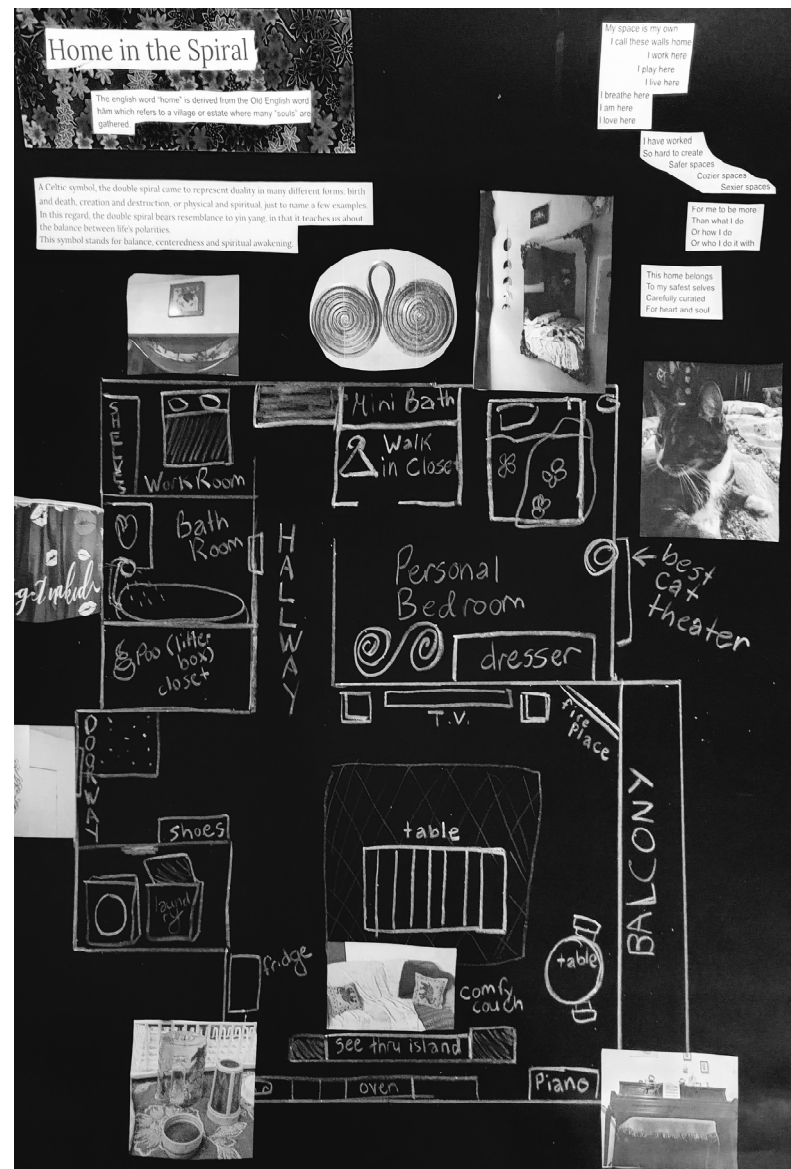 Home in the Spiral
The english word "home" is derived from the Old English word
hām which refers to a village or estate where many "souls" are
gathered.
A Celtic symbol, the double spiral came to represent duality in many different forms: birth
and death, creation and destruction, or physical and spiritual, just to name a few examples.
In this regard, the double spiral bears resemblance to yin yang, in that it teaches us about
the balance between life's polarities.
This symbol stands for balance, centeredness and spiritual awakening.
My space is my own
I call these walls home
I work here
I play here
I live here
I breathe here
I am here
I love here
I have worked
So hard to create
Safer spaces
Cozier spaces
Sexier spaces
For me to be more
Than what I do
Or how I do
Or who I do it with
This home belongs
To my safest selves
Carefully curated
For heart and soul
SHELVES
Work Room
Mini Bath
Walk
in Closet
Bath
Room
get naked
HALLWAY
Personal
Bedroom
best
cat
theater
Poo (litter
box)
closet
dresser
DOORWAY
T.V.
fire
place
shoes
table
BALCONY
laund
ry
fridge
comfy
couch
table
see thru island
oven
Piano